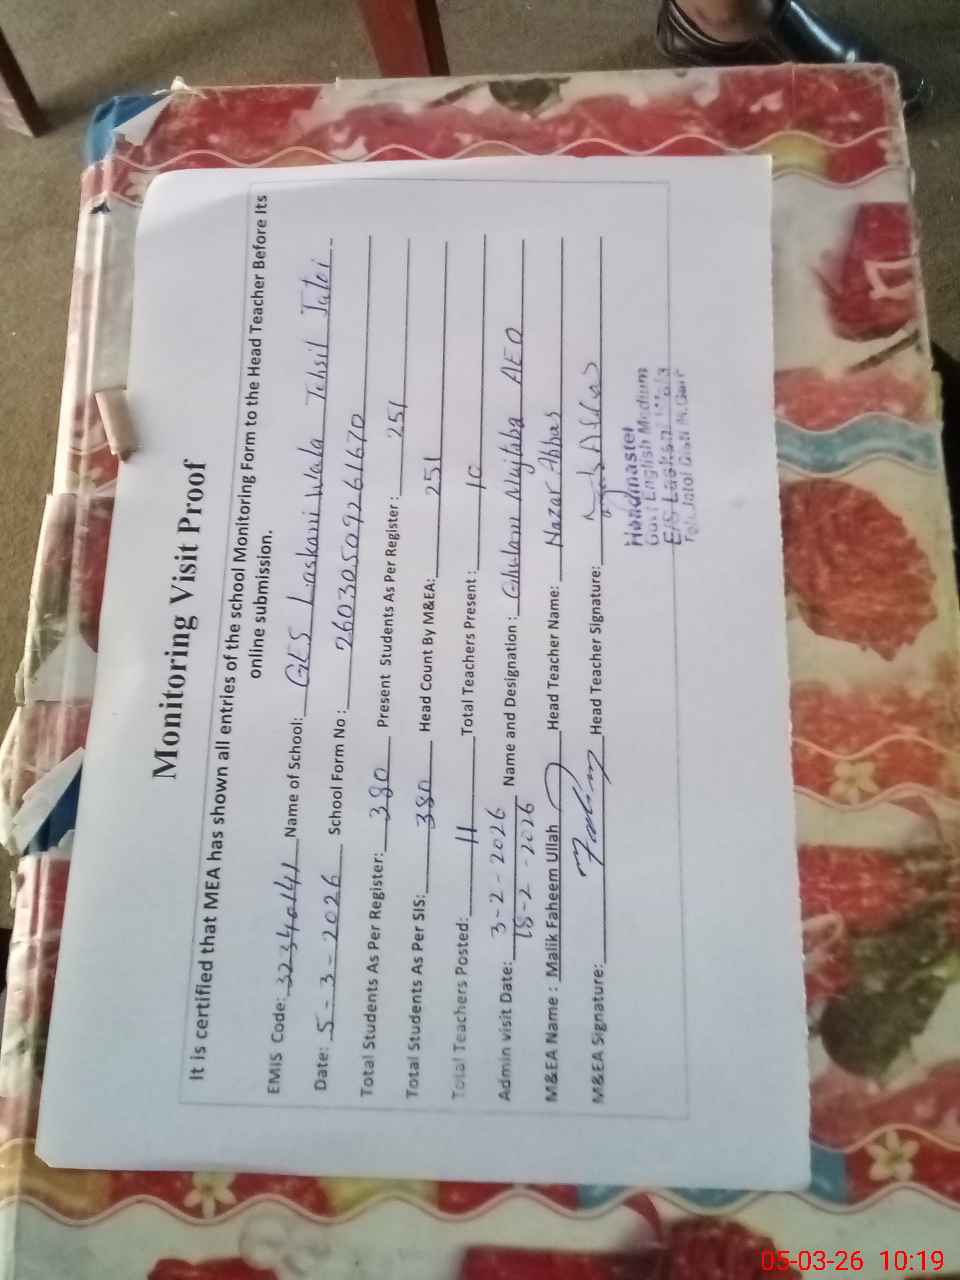 Monitoring Visit Proof
It is certified that MEA has shown all entries of the school Monitoring Form to the Head Teacher Before Its
online submission.
EMIS Code: 32340141 Name of School: GES Laskani Wala Tehsil Jatoi
Date: 5-3-2026 School Form No: 260305092261670
Total Students As Per Register: 380 Present Students As Per Register: 251
Total Students As Per SIS: 380 Head Count By M&EA: 251
Total Teachers Posted: 11 Total Teachers Present: 10
Admin visit Date: 3-2-2026 Name and Designation: Ghulam Mujtaba AEO
18-2-2026
M&EA Name: Malik Faheem Ullah Head Teacher Name: Nazar Abbas
M&EA Signature: Head Teacher Signature:
Headmaster
Govt English Medium
E/S Laskani
Jatoi Distt M.Garh
05-03-26 10:19